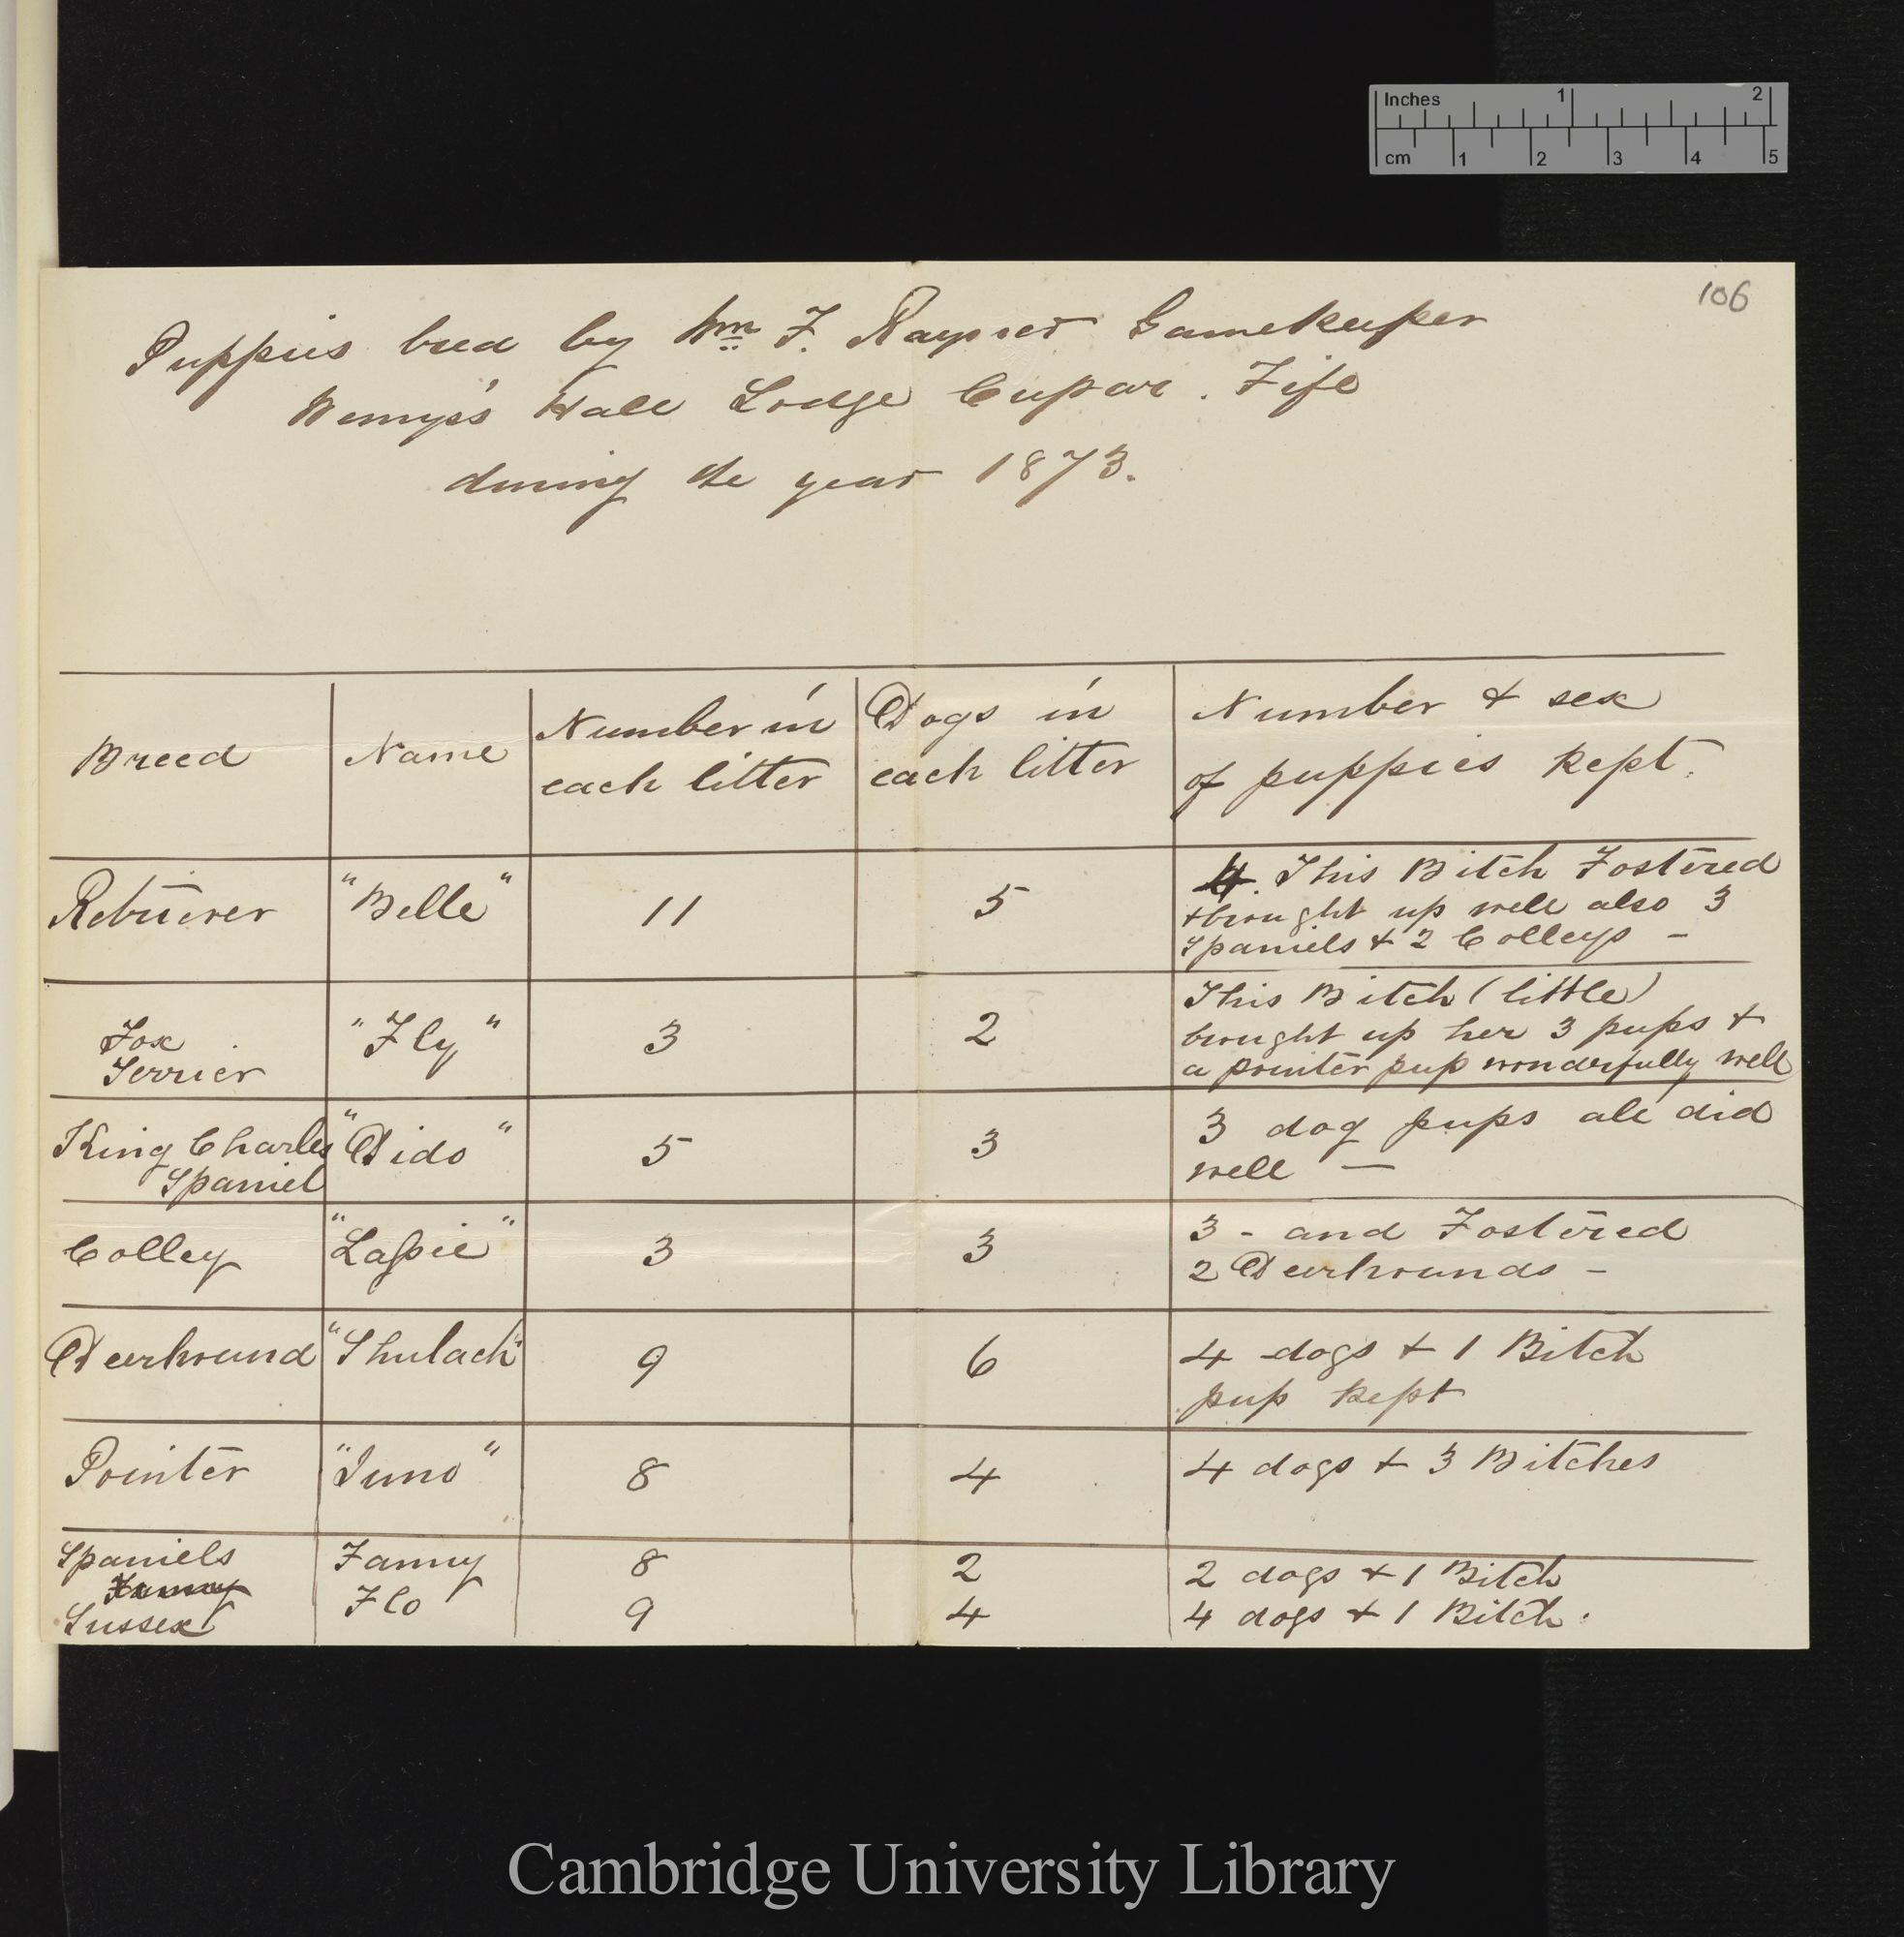 Inches 1 2
cm 1 2 3 4 5
106
Puppies bred by Wm F. Rayner Gamekeeper
Wemyss Hall Lodge Cupar. Fife
during the year 1873.
Breed
Name
Number in
each litter
Dogs in
each litter
Number & sex
of puppies kept.
Retriever
"Belle"
11
5
4. This Bitch Fostered
& brought up well also 3
Spaniels & 2 Colleys –
Fox
Terrier
"Fly"
3
2
This Bitch (little)
brought up her 3 pups &
a pointer pup wonderfully well
King Charles
Spaniel
"Dido"
5
3
3 dog pups all did
well —
Colley
"Lassie"
3
3
3 - and Fostered
2 Deerhounds –
Deerhound
"Shulach"
9
6
4 dogs & 1 Bitch
pup kept
Pointer
"Juno"
8
4
4 dogs & 3 Bitches
Spaniels
Fanny
8
2
2 dogs & 1 Bitch
Fanny
Sussex
Flo
9
4
4 dogs & 1 Bitch.
Cambridge University Library